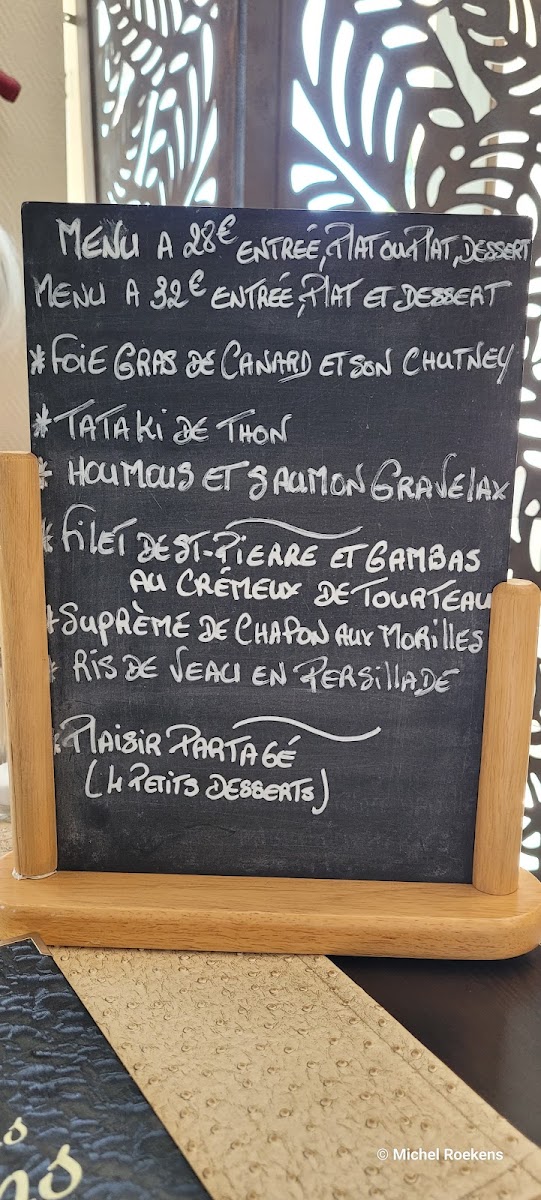 MENU A 28€ ENTREÉ, PLAT OU PLAT, DESSERT
MENU A 32€ ENTREÉ, PLAT ET DESSERT
* FOIE GRAS DE CANARD ET SON CHUTNEY
* TATAKI DE THON
* HOUMOUS ET SAUMON GRAVELAX
* FILET DE ST-PIERRE ET GAMBAS
AU CRÉMEUX DE TOURTEAU
* SUPRÈME DE CHAPON AUX MORILLES
* RIS DE VEAU EN PERSILLADE
* PLAISIR PARTAGÉ
(4 PETITS DESSERTS)
© Michel Roekens